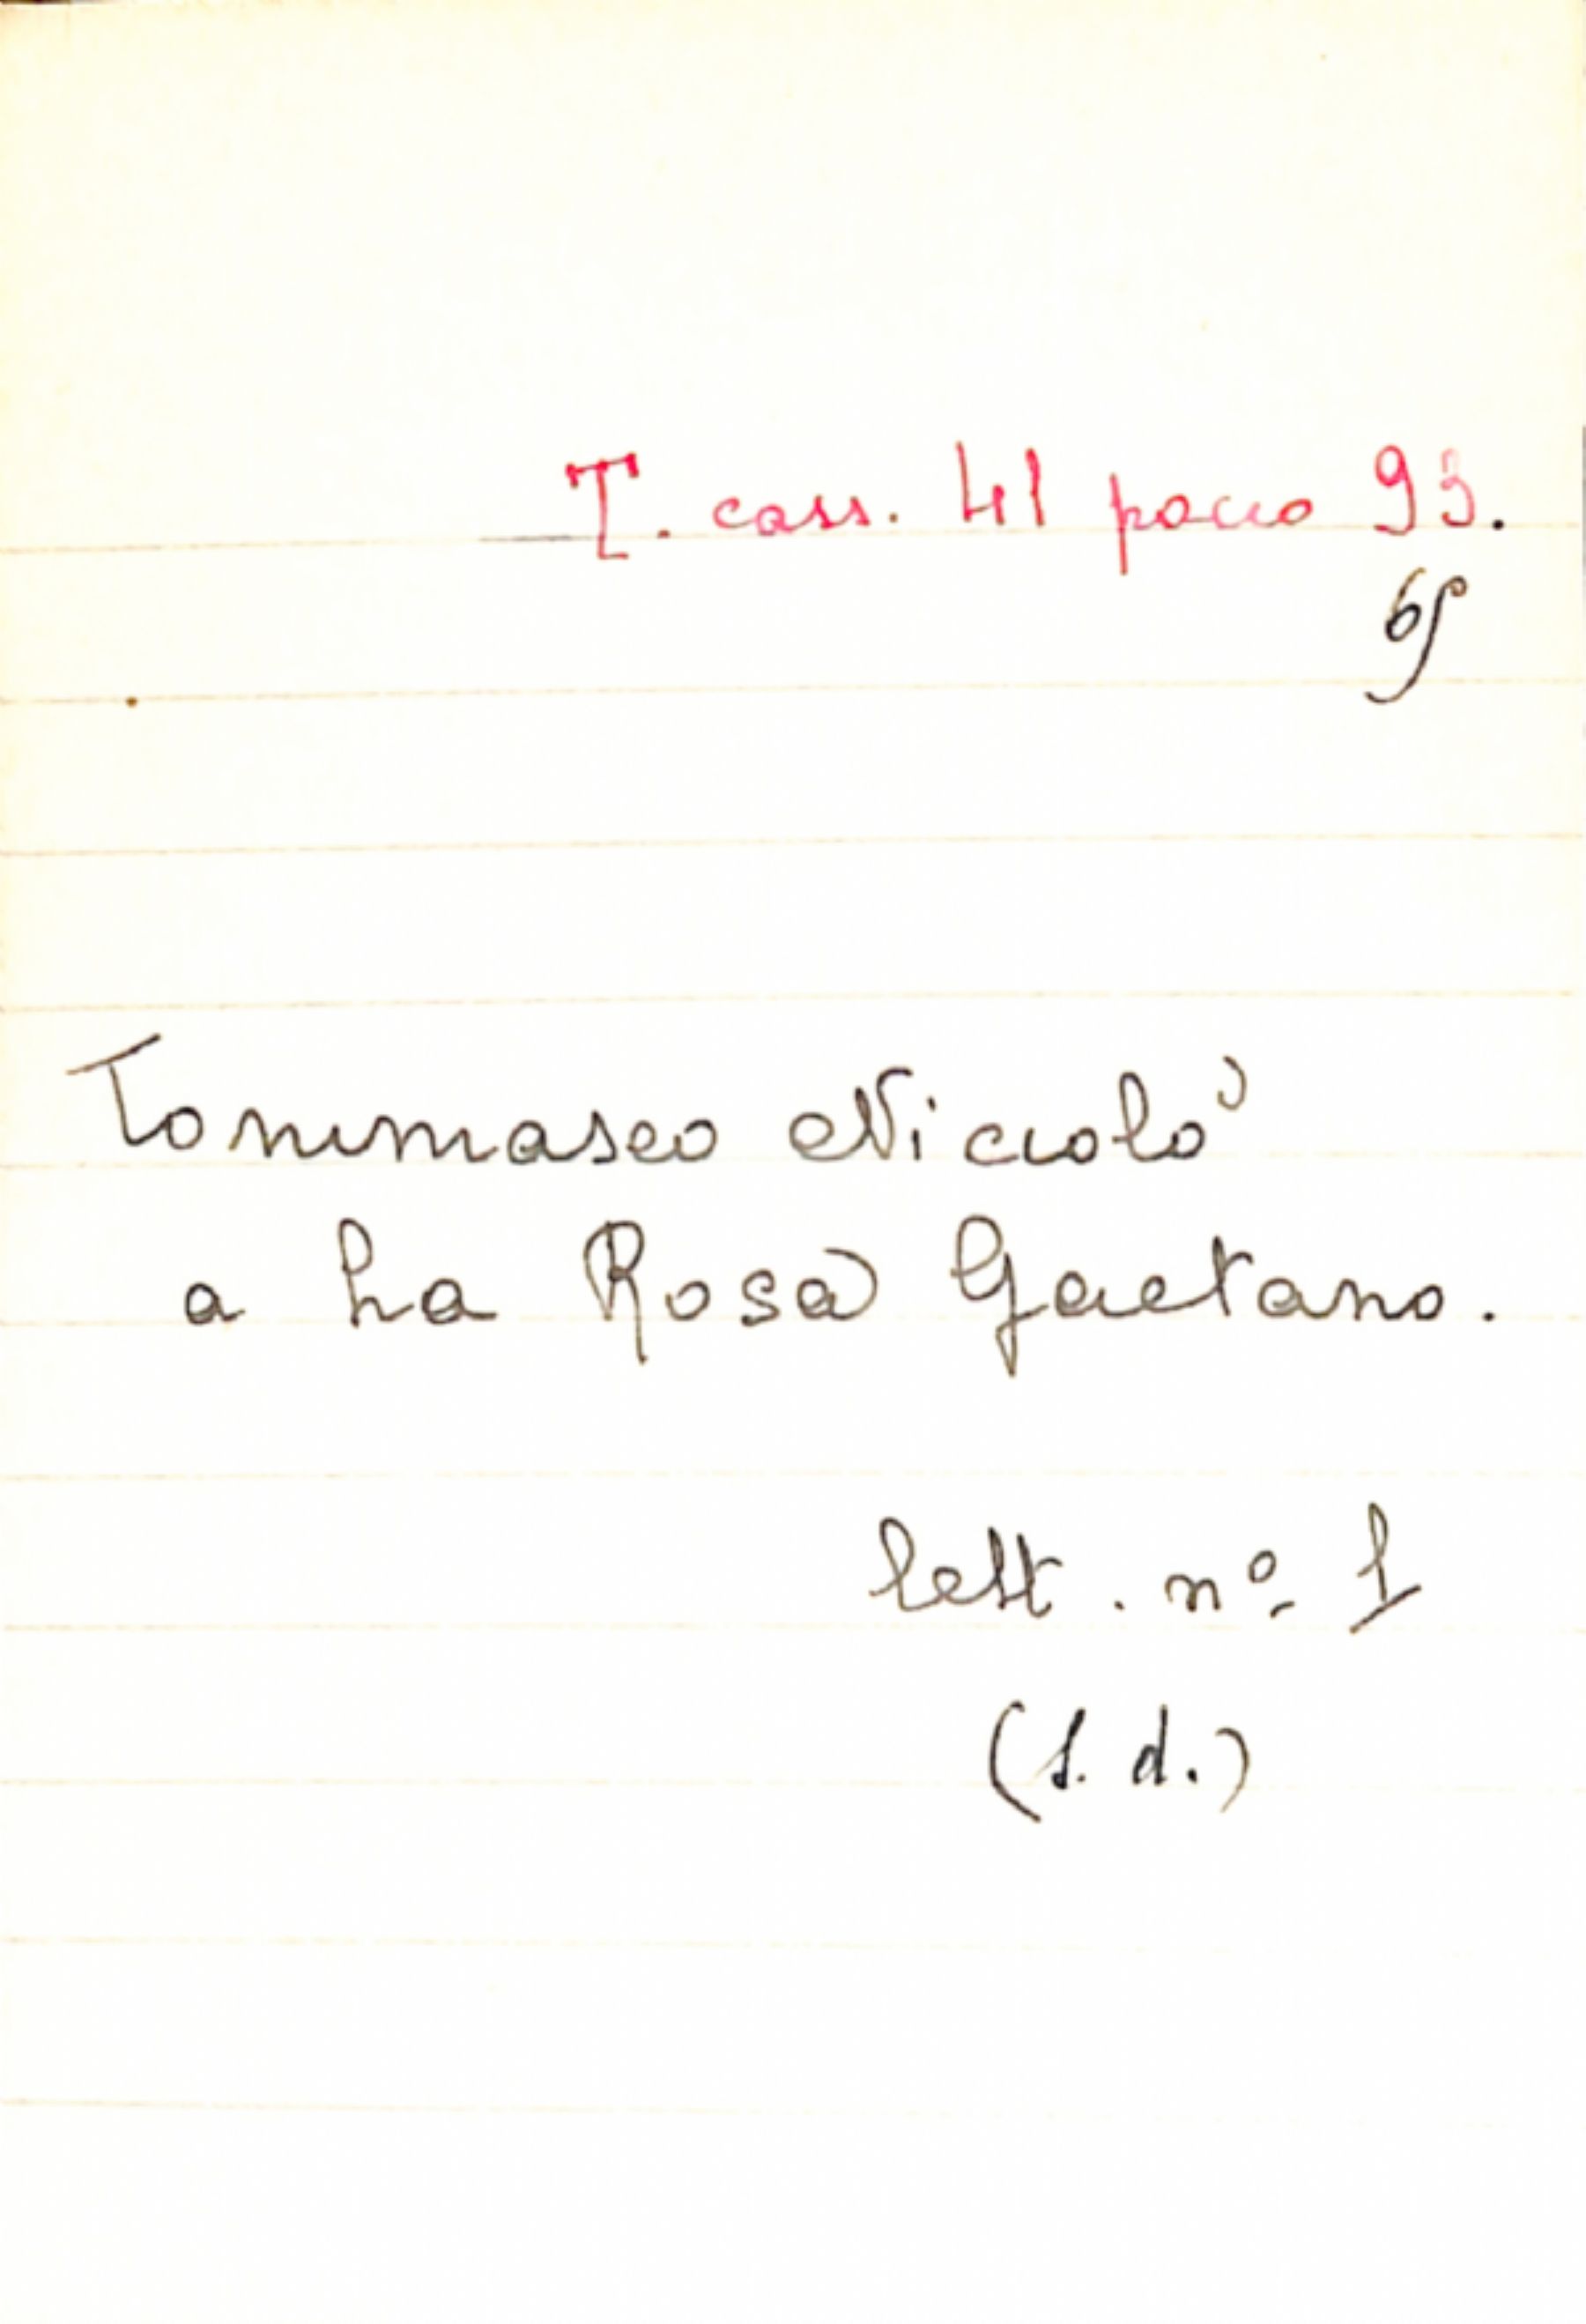 T. cass. 41 pacco 93.
65
Tommaseo Niccolò
a La Rosa Gaetano.
lett. nº 1
(s. d.)